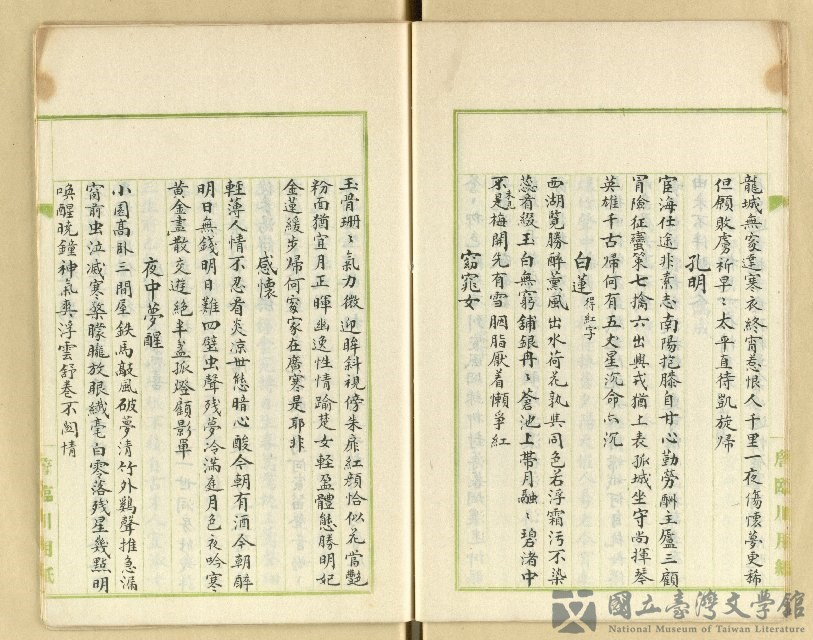 龍城無家達寒衣終宵惹恨人千里一夜傷懷夢更稀
但願敗虜祈早々太平直待凱旋歸
孔明
宦海仕途非素志南陽抱膝自甘心勤勞酬主廬三顧
冒險征蠻策七擒六出興戎猶上表孤城坐守尚揮琴
英雄千古歸何有五丈星沉命亦沉
白蓮 得紅字
西湖覽勝醉薰風出水荷花孰與同色若浮霜污不染
蕊看綴玉白無窮舖銀冉々蒼池上帶月融々碧渚中
不是梅開先有雪胭脂厭着懶爭紅
窈窕女
玉骨珊々氣力微迎眸斜視傍朱扉紅顏恰似花當艷
粉面猶宜月正暉幽逸性情踰楚女輕盈體態勝明妃
金蓮緩步歸何處家在廣寒是耶非
感懷
輕薄人情不忍看炎凉世態暗心酸今朝有酒今朝醉
明日無錢明日難四壁虫聲殘夢冷滿庭月色夜吟寒
黃金盡散交遊絕半盞孤燈顧影單
夜中夢醒
小園高臥三間屋鉄馬敲風破夢清竹外鷄聲推急漏
窗前虫泣滅寒檠朦朧放眼纖毫白零落殘星幾點明
喚醒晩鐘神氣爽浮雲舒卷不関情
國立臺灣文學館
National Museum of Taiwan Literature